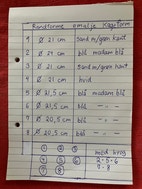 Bundforme emalje Kageform
1 Ø 21 cm Sand m/grøn kant
2 Ø 21 cm blå madam blå
3 Ø 21 cm Sand m/grøn kant
4 Ø 21 cm hvid
5 Ø 21,5 cm blå madam blå
6 Ø 21,5 cm blå -"- -"-
7 Ø 20,5 cm blå -"- -"-
8 Ø 20,5 cm blå -"- -"-
1 2 3 med krog
4 5 6 2-5-6
7 8 7-8